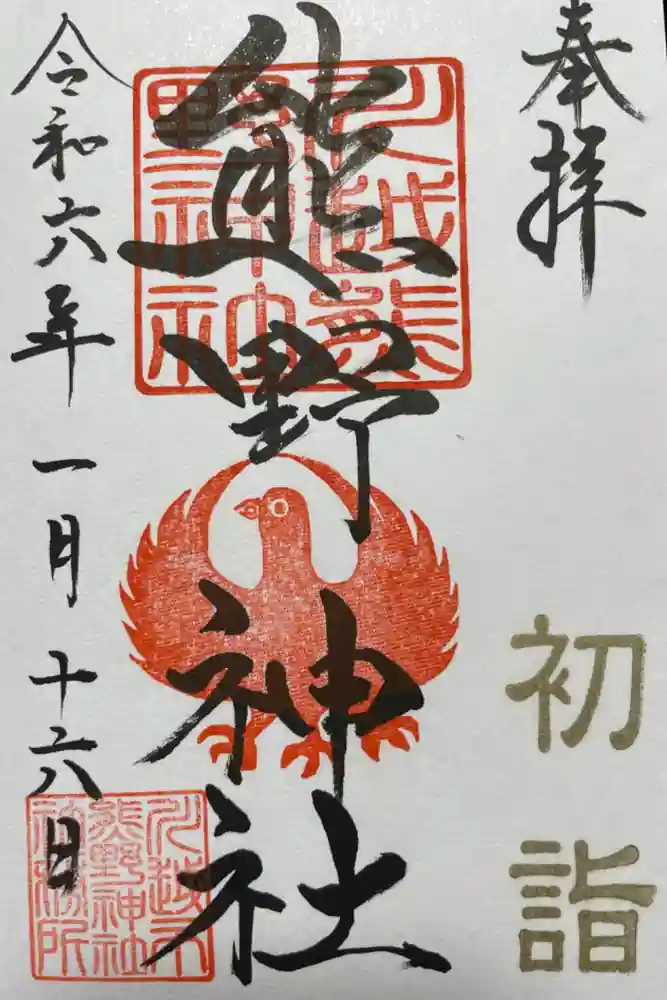 奉拝
初詣
熊野神社
川越熊
野神社
令和六年一月十六日
川越市
熊野神社
社務所